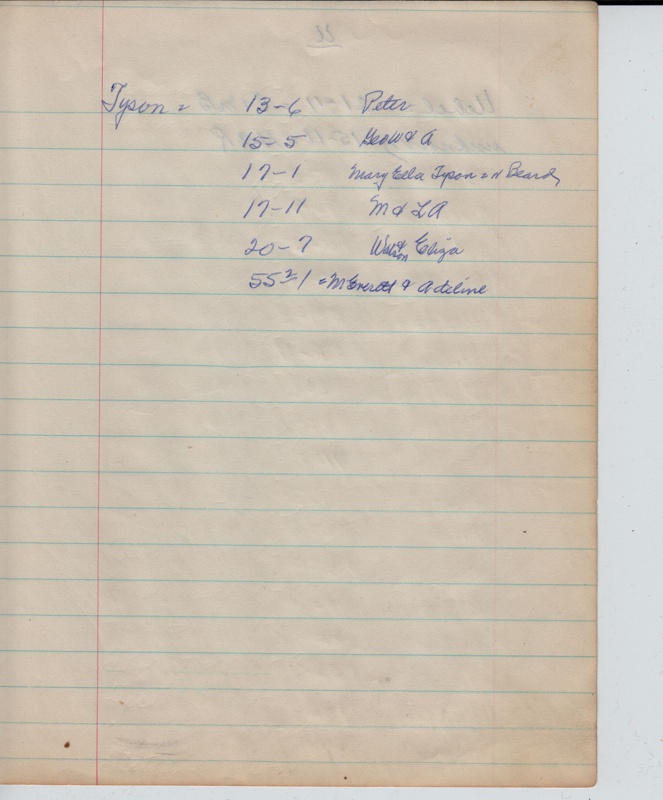 Tyson = 13-6 Peter
15-5 Geo W & A
17-1 Mary Ella Tyson = H Beard
17-11 M & L A
20-7 Watson & Eliza
55-1 = M Everett & Adeline